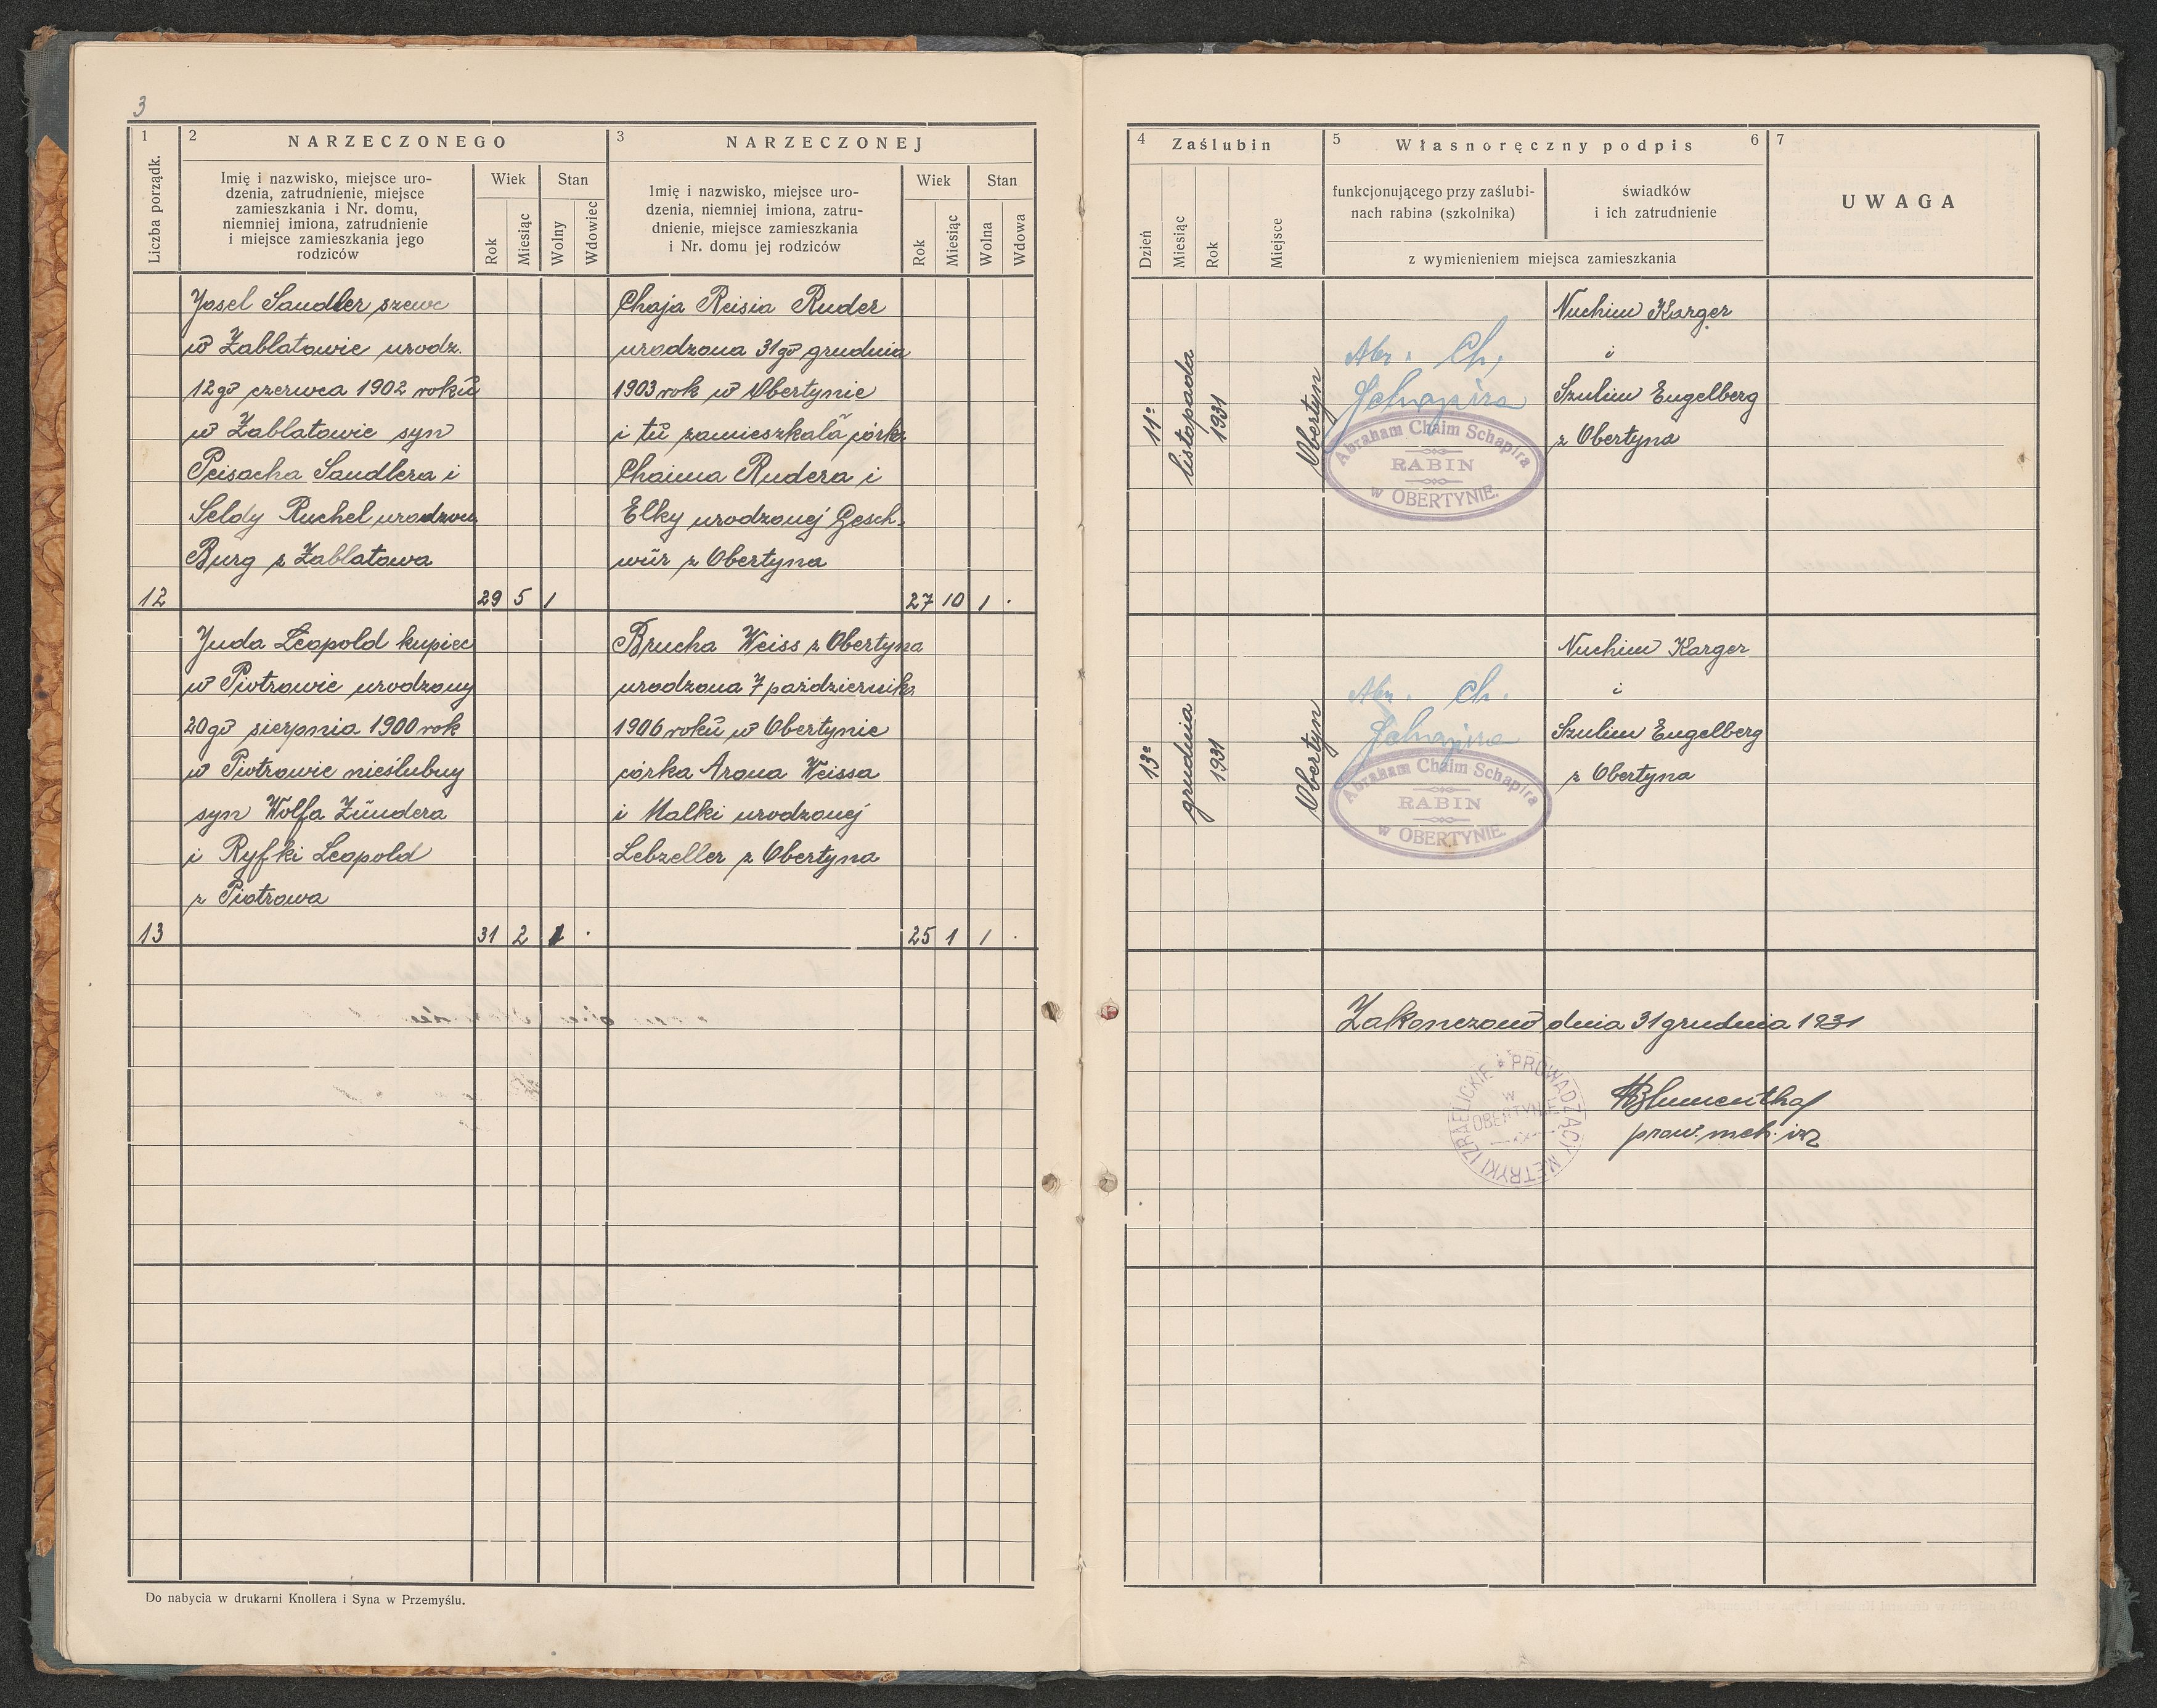 3
1
Liczba porządk.
2
NARZECZONEGO
Imię i nazwisko, miejsce uro-
dzenia, zatrudnienie, miejsce
zamieszkania i Nr. domu,
niemniej imiona, zatrudnienie
i miejsce zamieszkania jego
rodziców
Wiek
Rok
Miesiąc
Stan
Wolny
Wdowiec
3
NARZECZONEJ
Imię i nazwisko, miejsce uro-
dzenia, niemniej imiona, zatru-
dnienie, miejsce zamieszkania
i Nr. domu jej rodziców
Wiek
Rok
Miesiąc
Stan
Wolna
Wdowa
4
Zaślubin
Dzień
Miesiąc
Rok
Miejsce
5
Własnoręczny podpis
6
funkcjonującego przy zaślubi-
nach rabina (szkolnika)
świadków
i ich zatrudnienie
z wymienieniem miejsca zamieszkania
7
UWAGA
Josel Sandler szewc
w Zabłatowie urodz.
12go czerwca 1902 roku
w Zabłatowie syn
Peisacha Sandlera i
Seldy Ruchel urodzon
Burg z Zabłatowa
12
29 5 1
Chaja Reisia Ruder
urodzona 31go grudnia
1903 rok w Obertynie
i tu zamieszkała córka
Chaima Rudera i
Elky urodzonej Gesch-
wür z Obertyna
27 10 1 .
11o
listopada
1931
Obertyn
Abr. Ch.
Schapira
Abraham Chaim Schapira
RABIN
w OBERTYNIE.
Nuchim Karger
i
Szulim Engelberg
z Obertyna
Juda Leopold kupiec
w Piotrowie urodzony
20go sierpnia 1900 rok
w Piotrowie nieślubny
syn Wolfa Zündera
i Ryfki Leopold
z Piotrowa
13
31 2 1 .
Brucha Weiss z Obertyna
urodzona 7 października
1906 roku w Obertynie
córka Arona Weissa
i Malki urodzonej
Lebzeller z Obertyna
25 1 1 .
13o
grudnia
1931
Obertyn
Abr. Ch.
Schapira
Abraham Chaim Schapira
RABIN
w OBERTYNIE.
Nuchim Karger
i
Szulim Engelberg
z Obertyna
Zakonczono dnia 31 grudnia 1931
PROWADZĄCY METRYKI IZRAELICKIE
W
OBERTYNIE
HBlumenthal
prow. meh. izr
Do nabycia w drukarni Knollera i Syna w Przemyślu.